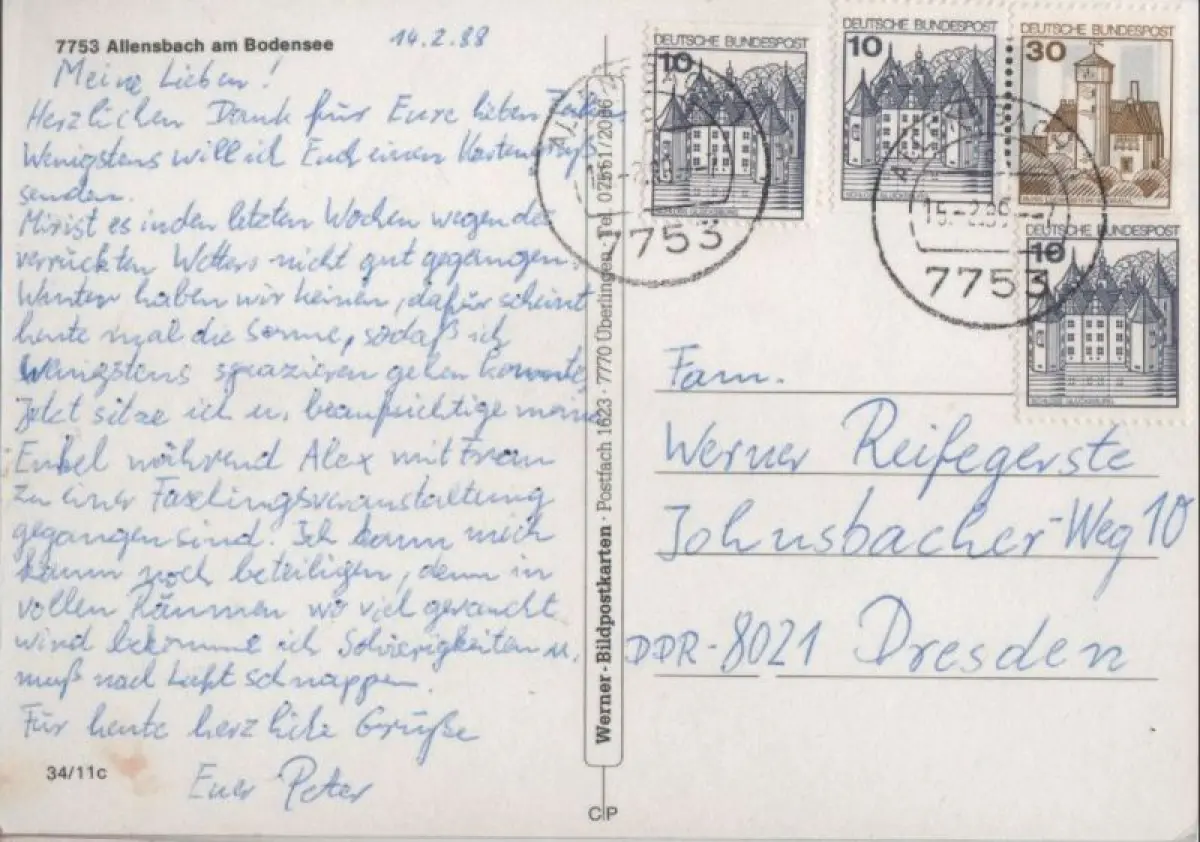 7753 Allensbach am Bodensee
14.2.88
Meine Lieben!
Herzlichen Dank für Eure lieben Zeilen
Wenigstens will ich Euch einen Kartengruß
senden.
Mir ist es in den letzten Wochen wegen des
verrückten Wetters nicht gut gegangen.
Winter haben wir keinen, dafür scheint
heute mal die Sonne, sodaß ich
wenigstens spazieren gehen konnte.
Jetzt sitze ich u. beaufsichtige meine
Enkel während Alex mit Frau
zu einer Faschingsveranstaltung
gegangen sind. Ich kann mich
kaum noch beteiligen, denn in
vollen Räumen wo viel geraucht
wird bekomme ich Schwierigkeiten u.
muß nach Luft schnappen.
Für heute herzliche Grüße
Euer Peter
34/11c
Werner-Bildpostkarten · Postfach 1623 · 7770 Überlingen · Tel. 07551/2096
C P
DEUTSCHE BUNDESPOST
10
SCHLOSS GLÜCKSBURG
DEUTSCHE BUNDESPOST
10
SCHLOSS GLÜCKSBURG
DEUTSCHE BUNDESPOST
30
DEUTSCHE BUNDESPOST
10
SCHLOSS GLÜCKSBURG
7753
7753
Fam.
Werner Reifegerste
Johnsbacher-Weg 10
DDR-8021 Dresden